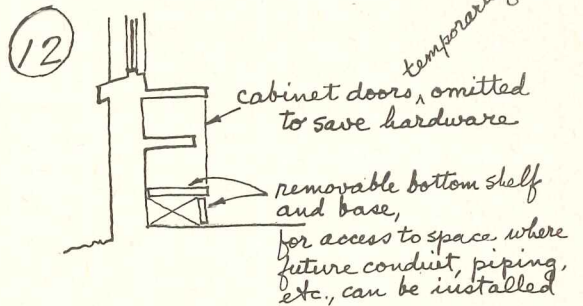 12
temporarily
cabinet doors ^ omitted
to save hardware
removable bottom shelf
and base,
for access to space where
future conduit, piping,
etc., can be installed